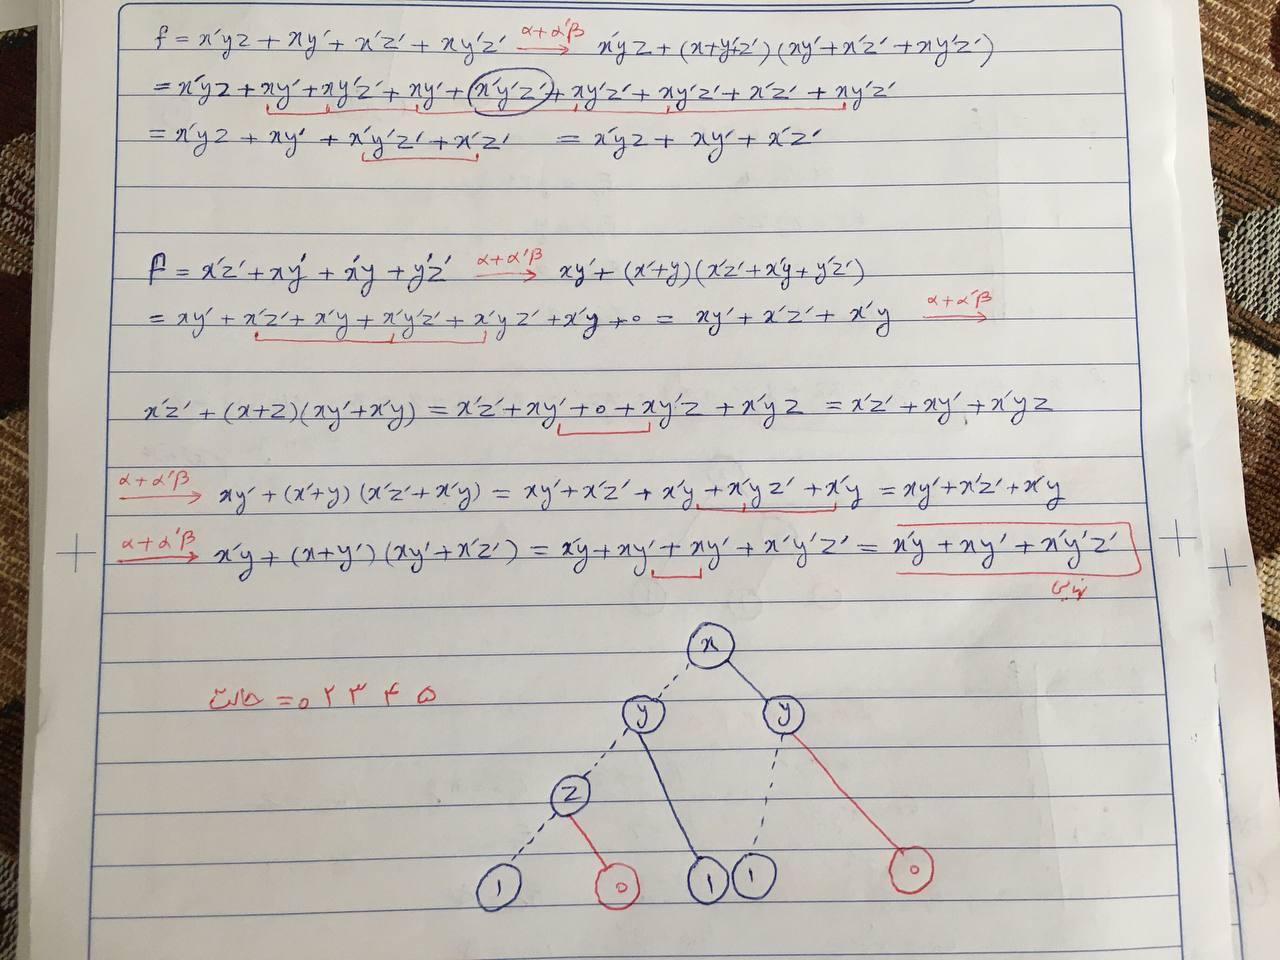 f = x'yz + xy' + x'z' + xy'z' α+α'β→ x'yz + (x+y'+z')(xy' + x'z' + xy'z')
= x'yz + xy' + xy'z' + xy' + x'y'z' + xy'z' + xy'z' + x'z' + xy'z'
= x'yz + xy' + x'y'z' + x'z' = x'yz + xy' + x'z'
f = x'z' + xy' + x'y + y'z' α+α'β→ xy' + (x'+y)(x'z' + x'y + y'z')
= xy' + x'z' + x'y + x'y'z' + x'yz' + x'y + 0 = xy' + x'z' + x'y α+α'β→
x'z' + (x+z)(xy' + x'y) = x'z' + xy' + 0 + xy'z + x'yz = x'z' + xy' + x'yz
α+α'β→ xy' + (x'+y)(x'z' + x'y) = xy' + x'z' + x'y + x'yz' + x'y = xy' + x'z' + x'y
α+α'β→ x'y + (x+y')(xy' + x'z') = x'y + xy' + xy' + x'y'z' = x'y + xy' + x'y'z'
x
حالت = ۰ ۲ ۳ ۴ ۵
y y
z
1 0 1 1 0